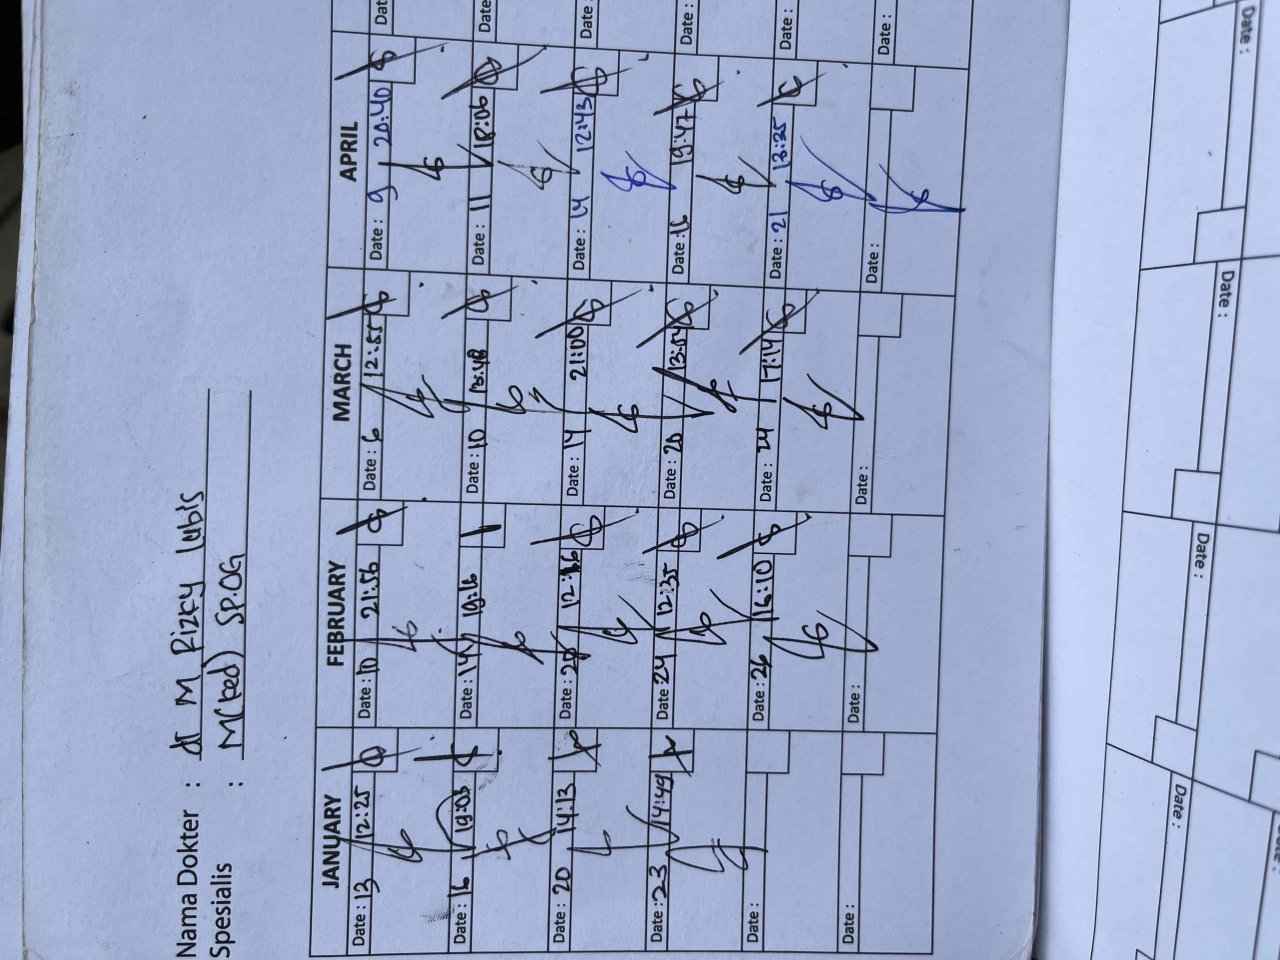 Nama Dokter : dr M Rizky Lubis
Spesialis : M(ked) SP.OG
JANUARY FEBRUARY MARCH APRIL
Date : 13 12:25 Date : 10 21:56 Date : 6 12:55 Date : 9 20:40 Date
Date : 16 19:03 Date : 14 19:16 Date : 10 18:48 Date : 11 18:06 Date
Date : 20 14:13 Date : 20 12:16 Date : 14 21:00 Date : 14 12:43 Date :
Date : 23 14:49 Date 24 12:35 Date : 20 13:54 Date : 16 19:47 Date :
Date : Date : 26 16:10 Date : 24 17:14 Date : 21 13:35 Date :
Date : Date : Date : Date : Date :
Date : Date : Date : Date :